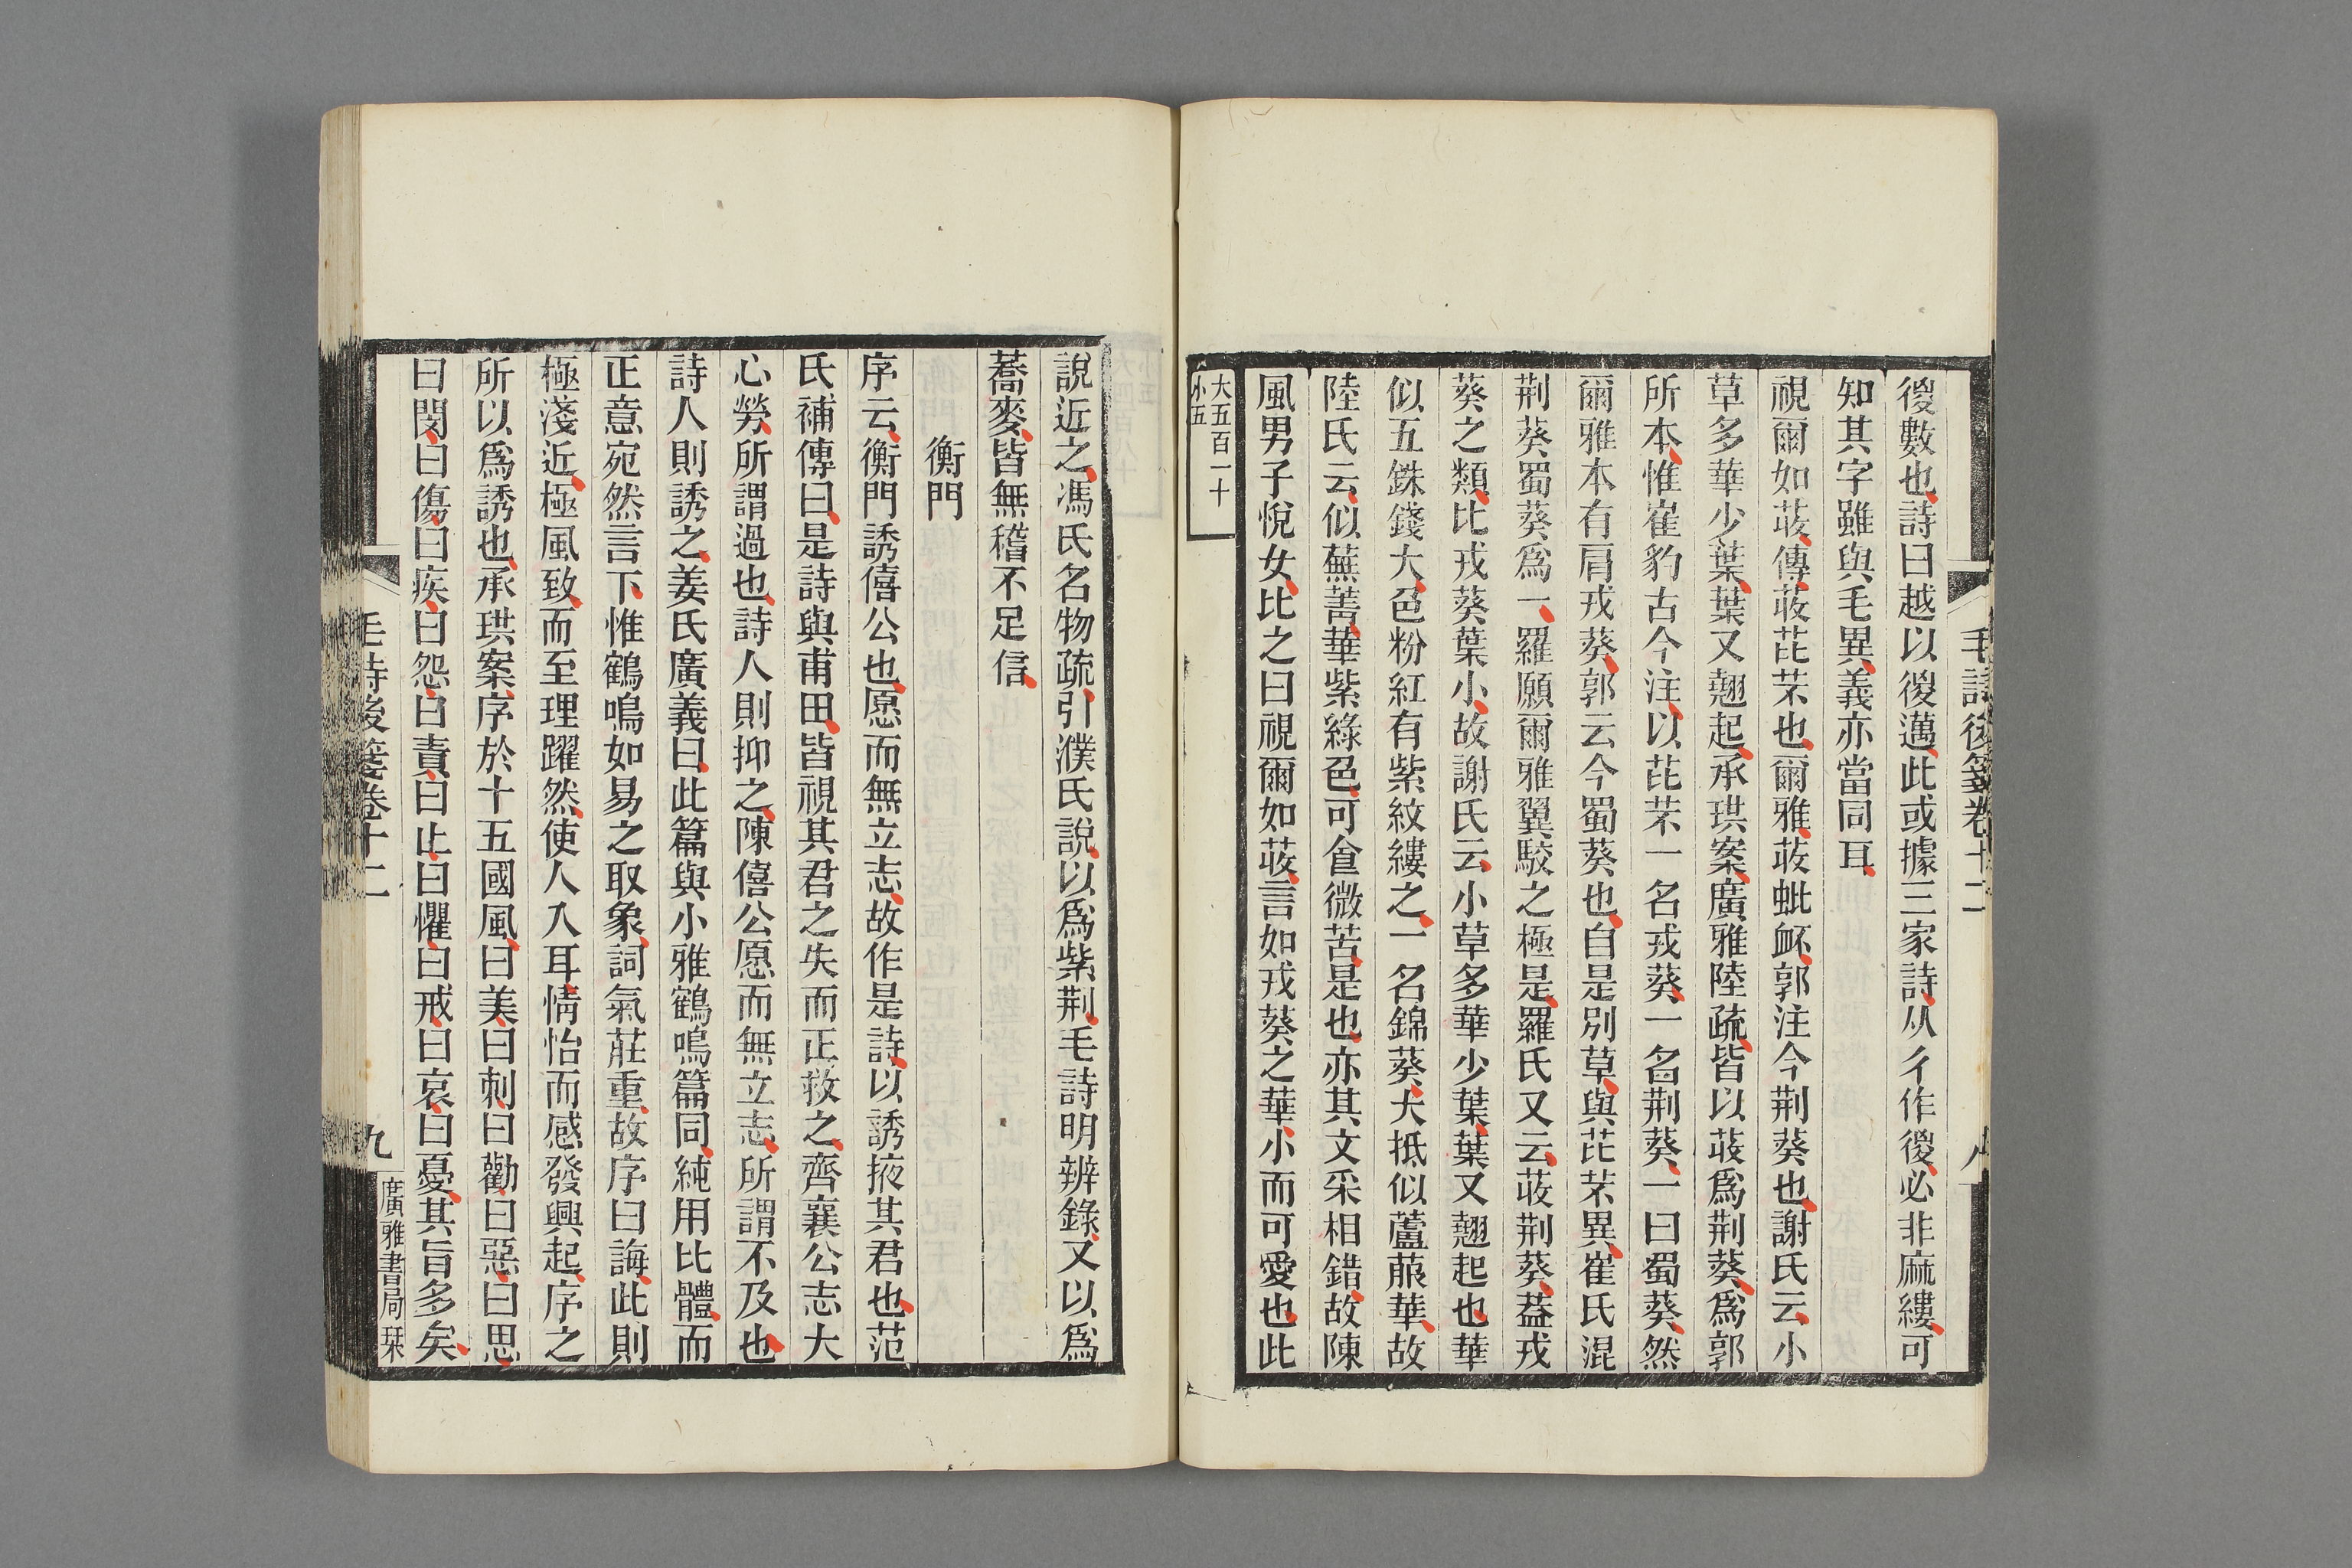 毛詩後箋卷十二
八
㣭數也詩曰越以㣭邁此或據三家詩从彳作㣭必非麻縷可
知其字雖與毛異義亦當同耳
視爾如荍傳荍芘芣也爾雅荍蚍衃郭注今荆葵也謝氏云小
草多華少葉葉又翹起承珙案廣雅陸疏皆以荍爲荆葵爲郭
所本惟崔豹古今注以芘芣一名戎葵一名荆葵一曰蜀葵然
爾雅本有肩戎葵郭云今蜀葵也自是別草與芘芣異崔氏混
荆葵蜀葵爲一羅願爾雅翼駮之極是羅氏又云荍荆葵葢戎
葵之類比戎葵葉小故謝氏云小草多華少葉葉又翹起也華
似五銖錢大色粉紅有紫紋縷之一名錦葵大抵似蘆菔華故
陸氏云似蕪菁華紫綠色可食微苦是也亦其文采相錯故陳
風男子悅女比之曰視爾如荍言如戎葵之華小而可愛也此
大五百一十
小五
說近之馮氏名物疏引濮氏說以爲紫荆毛詩明辨錄又以爲
蕎麥皆無稽不足信
衡門
序云衡門誘僖公也愿而無立志故作是詩以誘掖其君也范
氏補傳曰是詩與甫田皆視其君之失而正救之齊襄公志大
心勞所謂過也詩人則抑之陳僖公愿而無立志所謂不及也
詩人則誘之姜氏廣義曰此篇與小雅鶴鳴篇同純用比體而
正意宛然言下惟鶴鳴如易之取象詞氣莊重故序曰誨此則
極淺近極風致而至理躍然使人入耳情怡而感發興起序之
所以爲誘也承珙案序於十五國風曰美曰刺曰勸曰惡曰思
曰閔曰傷曰疾曰怨曰責曰止曰懼曰戒曰哀曰憂其旨多矣
毛詩後箋卷十二
九
廣雅書局栞